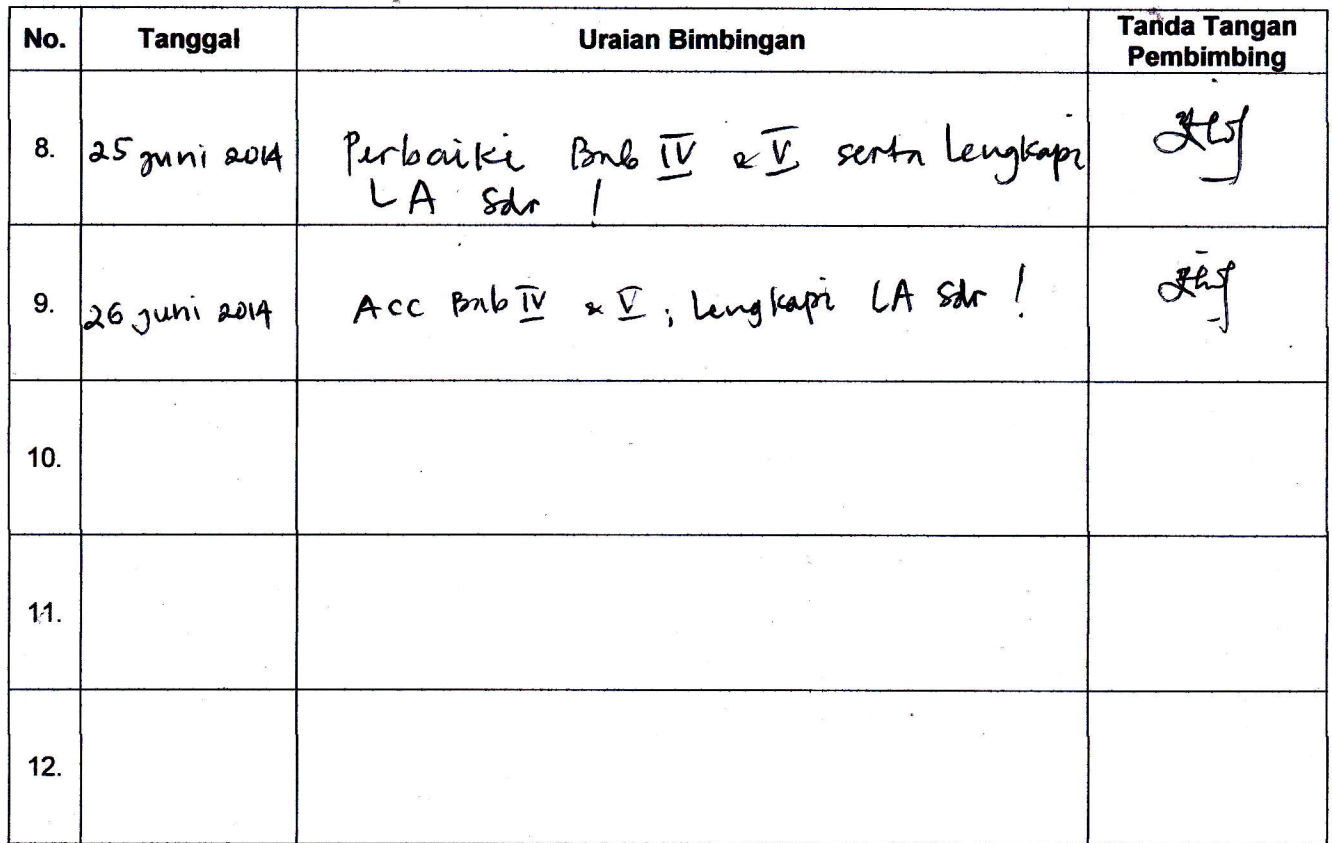 No. Tanggal Uraian Bimbingan Tanda Tangan Pembimbing
8. 25 Juni 2014 Perbaiki Bab IV & V serta lengkapi
LA Sdr !
9. 26 Juni 2014 Acc Bab IV & V ; lengkapi LA Sdr !
10.
11.
12.